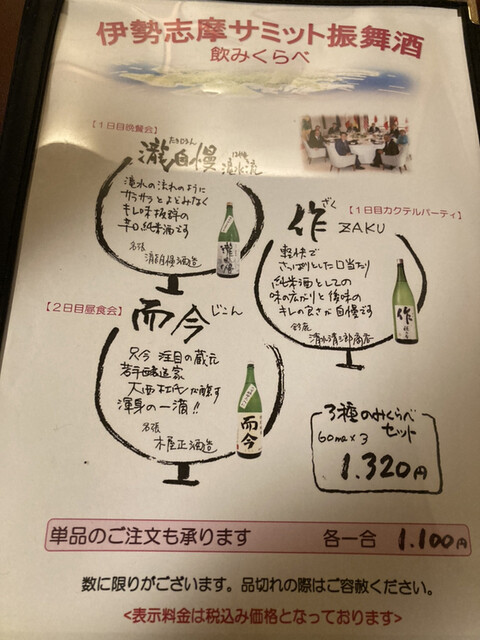 伊勢志摩サミット振舞酒
飲みくらべ
【1日目晩餐会】
たきじまん
瀧自慢
はやせ
滝水流
滝水の流れのように
サラサラとよどみなく
キレ味抜群の
辛口純米酒です
名張
瀧自慢酒造
瀧自慢
ざく
作
【1日目カクテルパーティ】
ZAKU
軽快で
さっぱりとした口当たり
純米酒としての
味の広がりと後味の
キレの良さが自慢です
鈴鹿
清水清三郎商店
作
【2日目昼食会】
而今
じこん
只今 注目の蔵元
若手醸造家
大西杜氏が醸す
渾身の一滴!!
名張
木屋正酒造
而今
3種のみくらべ
セット
60ml×3
1.320円
単品のご注文も承ります
各一合 1.100円
数に限りがございます。品切れの際はご容赦ください。
<表示料金は税込み価格となっております>